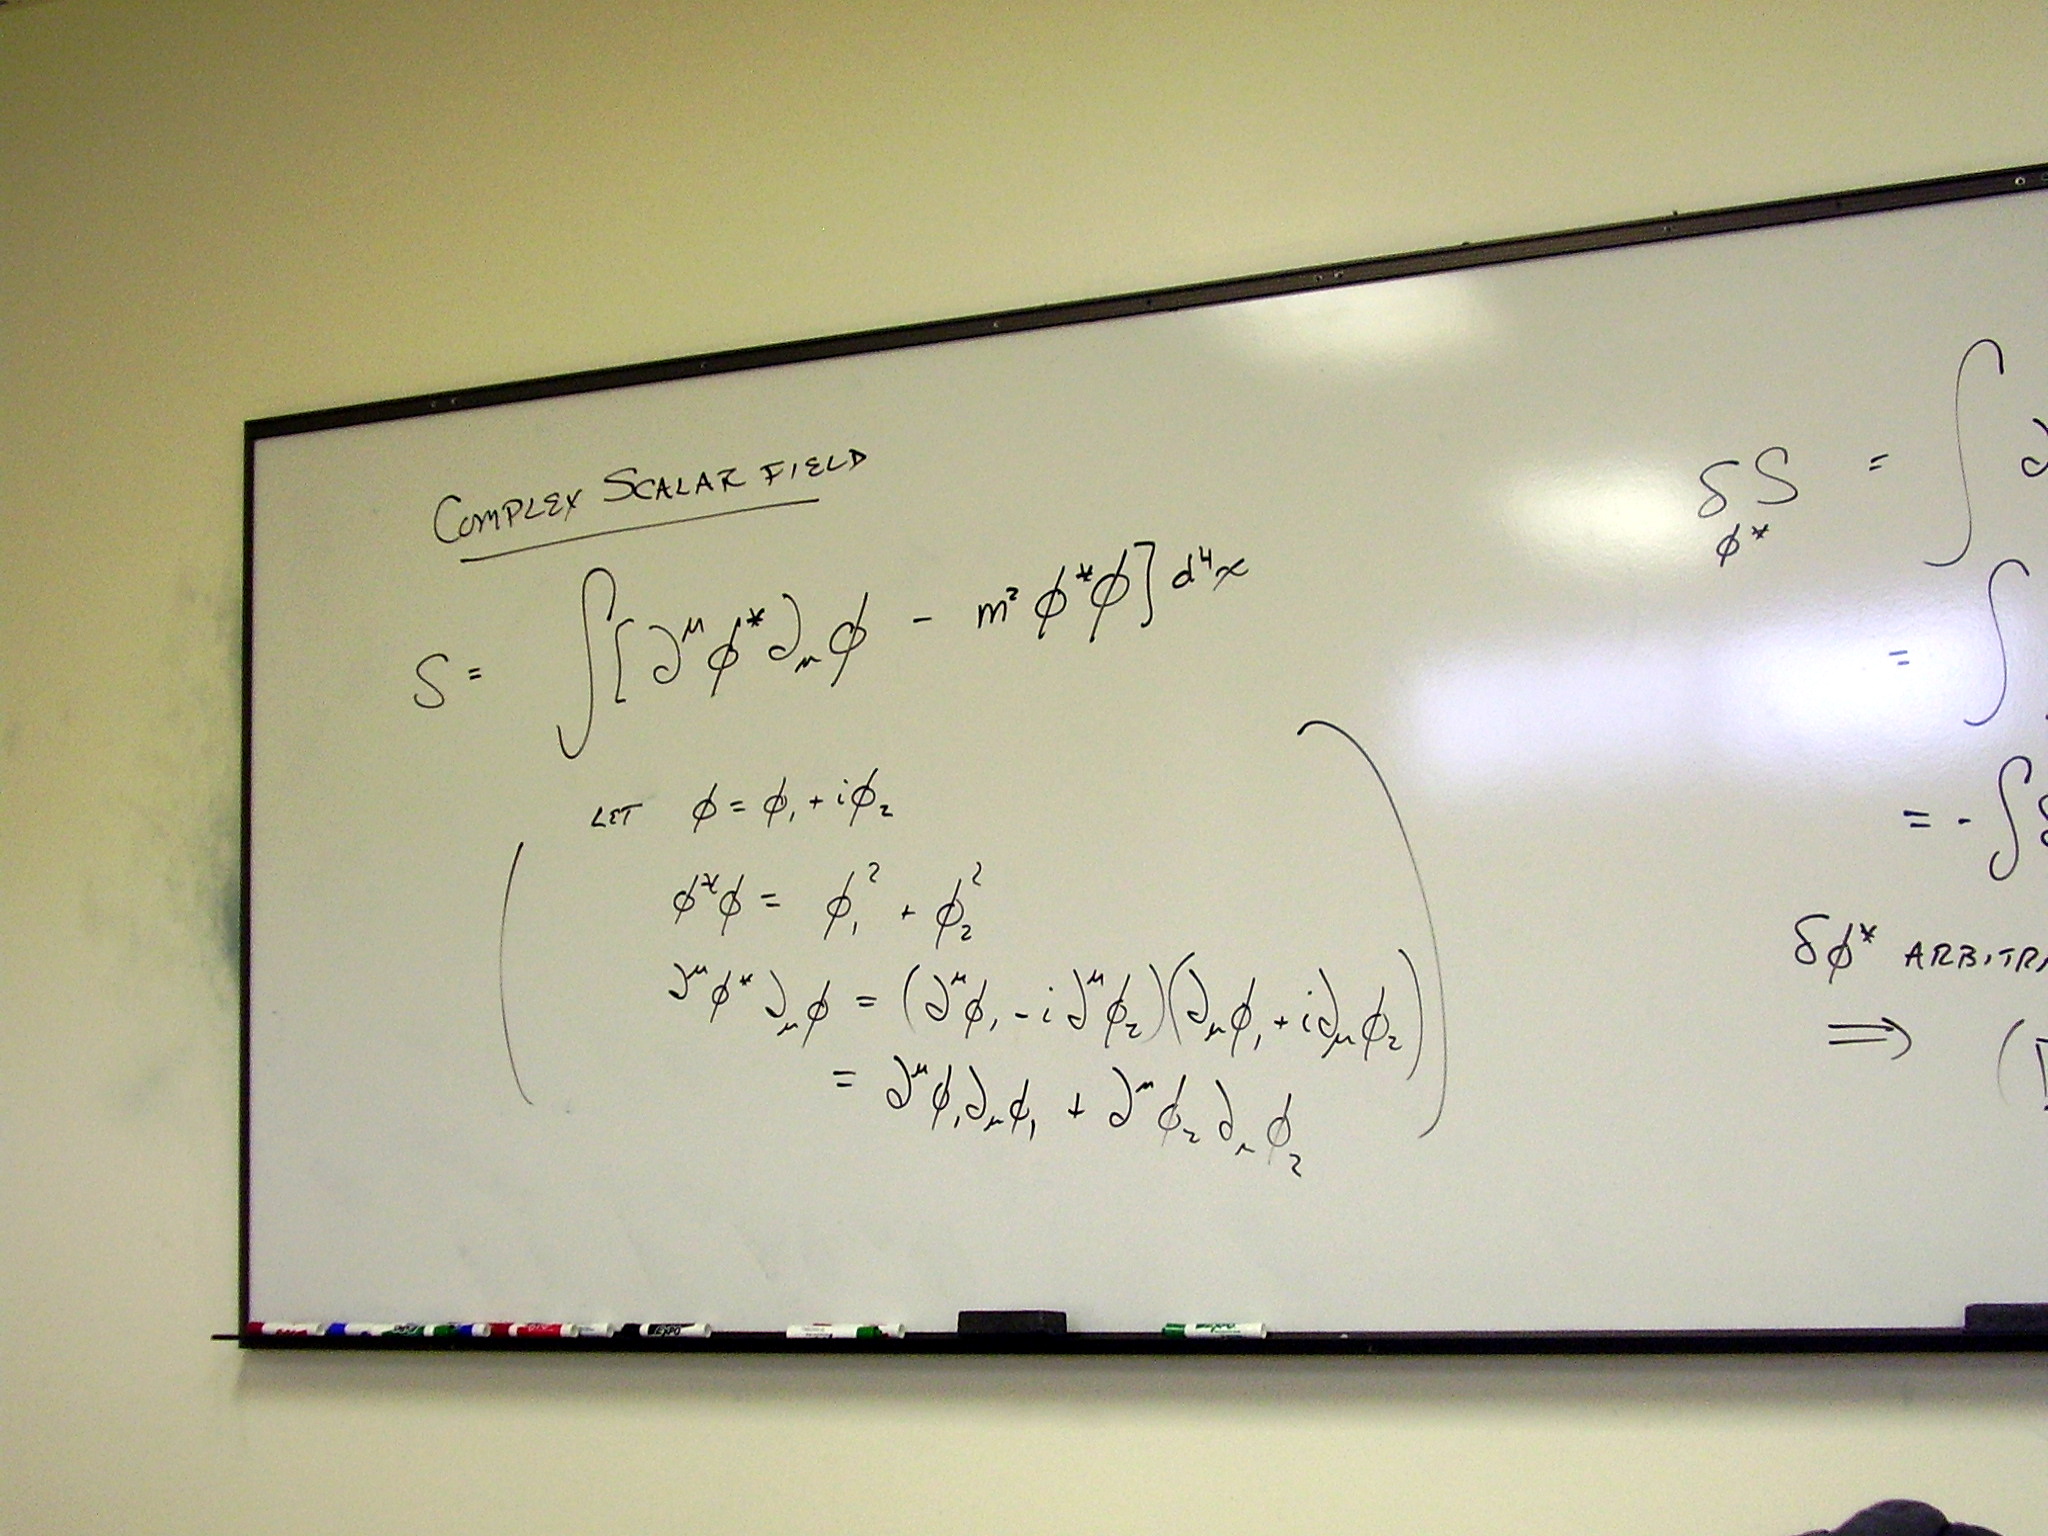 COMPLEX SCALAR FIELD
S = ∫[∂^μ φ* ∂_μ φ - m² φ*φ] d⁴x
LET φ = φ₁ + iφ₂
φ*φ = φ₁² + φ₂²
∂^μ φ* ∂_μ φ = (∂^μ φ₁ - i ∂^μ φ₂)(∂_μ φ₁ + i ∂_μ φ₂)
= ∂^μ φ₁ ∂_μ φ₁ + ∂^μ φ₂ ∂_μ φ₂
δS = ∫ ∂
φ*
= ∫
= - ∫ δ
δφ* ARBITRA
⇒ (
EXPO